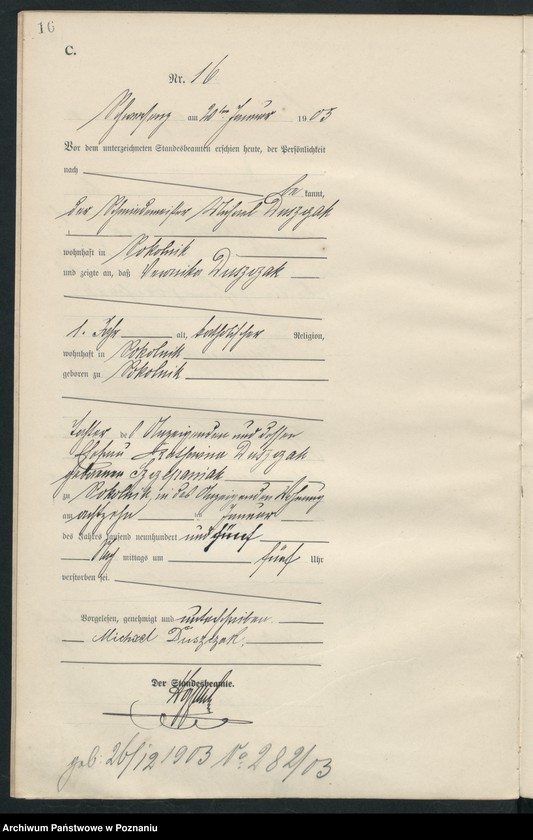 16
C.
Nr. 16
am 20ten Januar 1905
Vor dem unterzeichneten Standesbeamten erschien heute, der Persönlichkeit
nach
be kannt,
der Schmiedemeister Michael Duszczak
wohnhaft in Sokolnik
und zeigte an, daß Veronika Duszczak
1. Jahr alt, katholischer Religion,
wohnhaft in Sokolnik
geboren zu Sokolnik
Tochter des Anzeigenden und dessen
Ehefrau Katharina Duszczak
geborenen Szczepaniak
zu Sokolnik, in des Anzeigenden Wohnung
am achtzehn ten Januar
des Jahres tausend neunhundert und fünf
Nach mittags um fünf Uhr
verstorben sei.
Vorgelesen, genehmigt und unterschrieben
Michael Duszczak.
Der Standesbeamte.
geb. 26/12 1903 No. 282/03
Archiwum Państwowe w Poznaniu